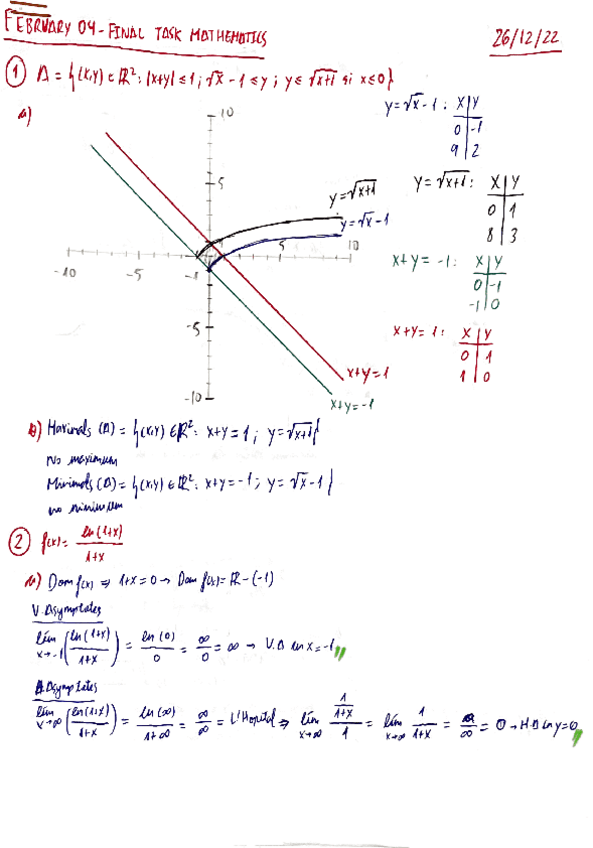 FEBRUARY 04 - FINAL TASK MATHEMATICS 26/12/22
① A = {(x,y) ∈ R²: |x+y| ≤ 1; √x - 1 ≤ y; y ≤ √x+1 si x ≤ 0}
a)
10
5
-10 -5 -1 5 10
-5
-10
y = √x+1
y = √x - 1
x+y = 1
x+y = -1
y = √x - 1: x y
0 -1
9 2
y = √x+1: x y
0 1
8 3
x+y = -1: x y
0 -1
-1 0
x+y = 1: x y
0 1
1 0
b) Maximals (A) = {(x,y) ∈ R²: x+y = 1; y = √x+1}
No maximum
Minimals (A) = {(x,y) ∈ R²: x+y = -1; y = √x - 1}
no minimum
② f(x) = ln(1+x) / 1+x
a) Dom f(x) ⇒ 1+x = 0 → Dom f(x) = R - (-1)
V. Asymptotes
lím x→-1 (ln(1+x) / 1+x) = ln(0) / 0 = ∞ / 0 = ∞ → V.A en x = -1
H. Asymptotes
lím x→∞ (ln(1+x) / 1+x) = ln(∞) / 1+∞ = ∞ / ∞ = L'Hopital ⇒ lím x→∞ (1 / 1+x) / 1 = lím x→∞ 1 / 1+x = / ∞ = 0 → H.A en y = 0